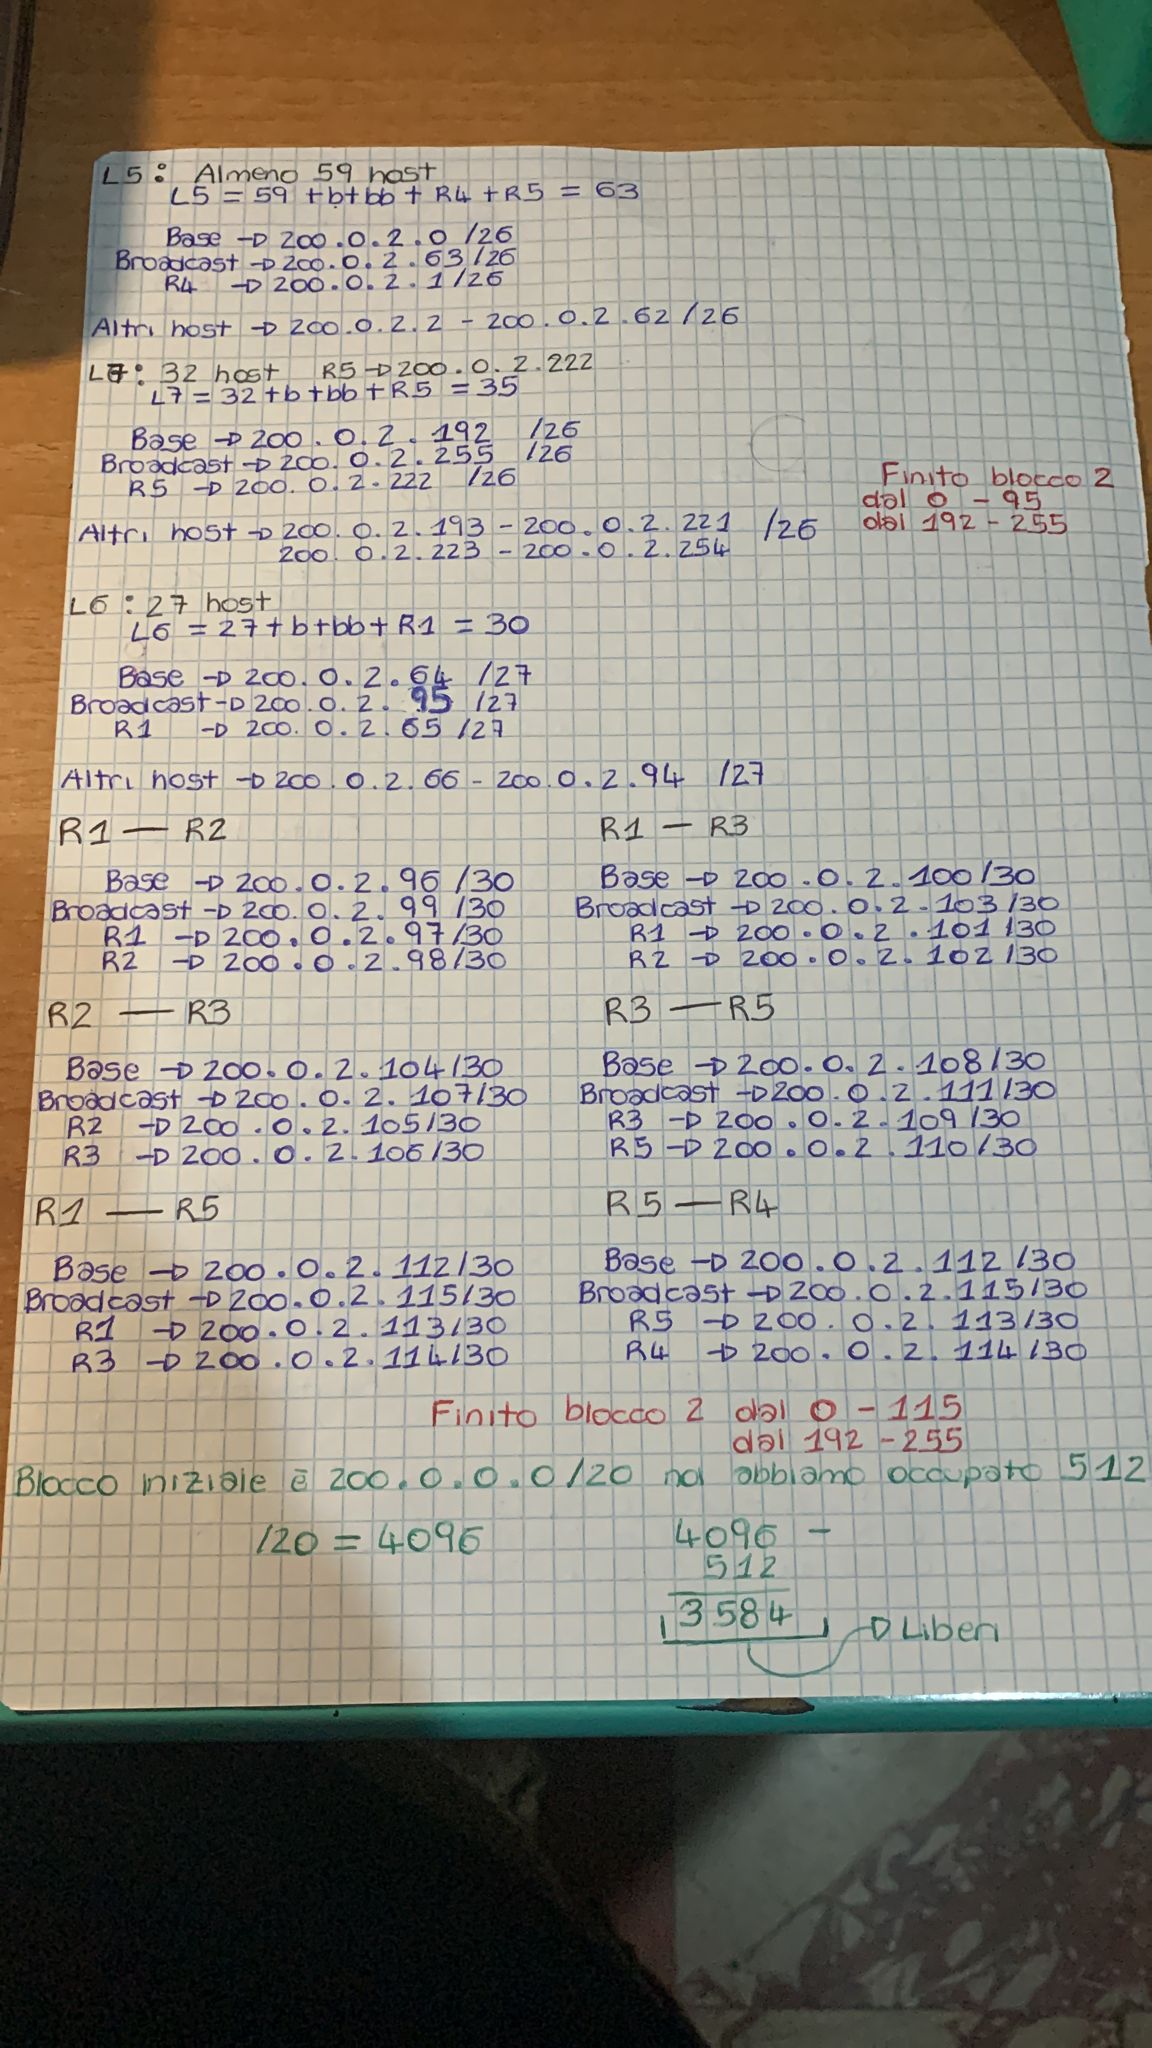 L5: Almeno 59 host
L5 = 59 + b + bb + R4 + R5 = 63
Base → 200.0.2.0 /26
Broadcast → 200.0.2.63/26
R4 → 200.0.2.1/26
Altri host → 200.0.2.2 - 200.0.2.62 /26
L7: 32 host R5 → 200.0.2.222
L7 = 32 + b + bb + R5 = 35
Base → 200.0.2.192 /26
Broadcast → 200.0.2.255 /26
R5 → 200.0.2.222 /26
Finito blocco 2
dal 0 - 95
dal 192 - 255
Altri host → 200.0.2.193 - 200.0.2.221 /26
200.0.2.223 - 200.0.2.254
L6: 27 host
L6 = 27 + b + bb + R1 = 30
Base → 200.0.2.64 /27
Broadcast → 200.0.2.95 /27
R1 → 200.0.2.65 /27
Altri host → 200.0.2.66 - 200.0.2.94 /27
R1 — R2
Base → 200.0.2.96 /30
Broadcast → 200.0.2.99 /30
R1 → 200.0.2.97/30
R2 → 200.0.2.98/30
R1 — R3
Base → 200.0.2.100/30
Broadcast → 200.0.2.103/30
R1 → 200.0.2.101/30
R2 → 200.0.2.102/30
R2 — R3
Base → 200.0.2.104/30
Broadcast → 200.0.2.107/30
R2 → 200.0.2.105/30
R3 → 200.0.2.106/30
R3 — R5
Base → 200.0.2.108/30
Broadcast → 200.0.2.111/30
R3 → 200.0.2.109/30
R5 → 200.0.2.110/30
R1 — R5
Base → 200.0.2.112/30
Broadcast → 200.0.2.115/30
R1 → 200.0.2.113/30
R3 → 200.0.2.114/30
R5 — R4
Base → 200.0.2.112/30
Broadcast → 200.0.2.115/30
R5 → 200.0.2.113/30
R4 → 200.0.2.114/30
Finito blocco 2 dal 0 - 115
dal 192 - 255
Blocco iniziale è 200.0.0.0/20 noi abbiamo occupato 512
/20 = 4096
4096 -
512
3584 → Liberi